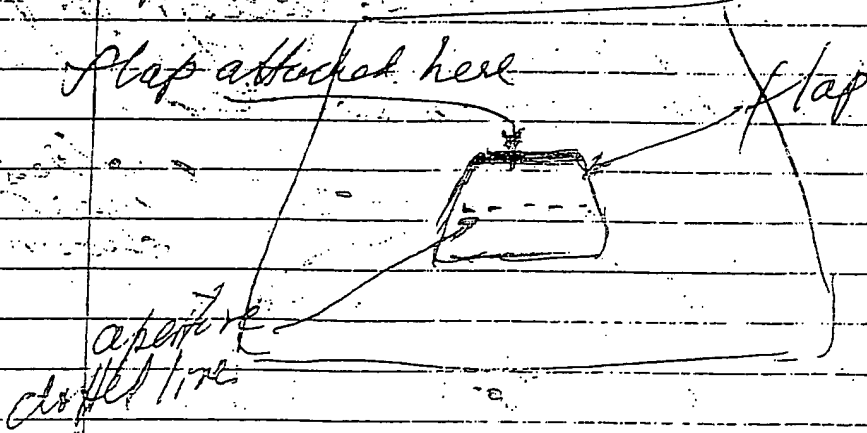 flap attached here
flap
aperture
dotted line